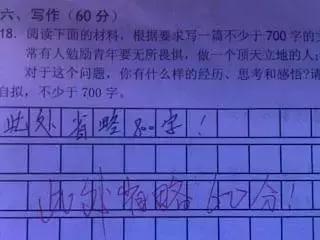 六、写作（60分）
18. 阅读下面的材料，根据要求写一篇不少于700字的文
常有人勉励青年要无所畏惧，做一个顶天立地的人；
对于这个问题，你有什么样的经历、思考和感悟？请
自拟，不少于700字。
此处省略800字！
此处省略60分！